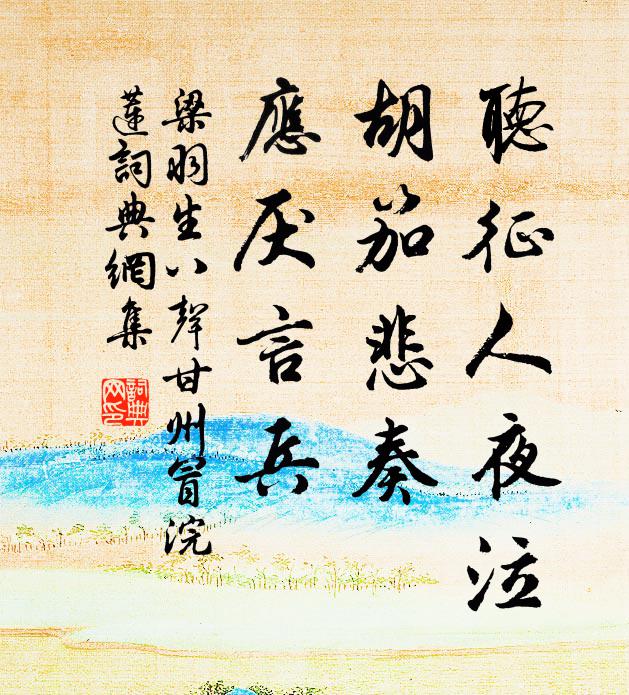 聽征人夜泣
胡笳悲奏
應厌言兵
梁羽生八聲甘州冒浣
蓮詞典網集
詞典網印